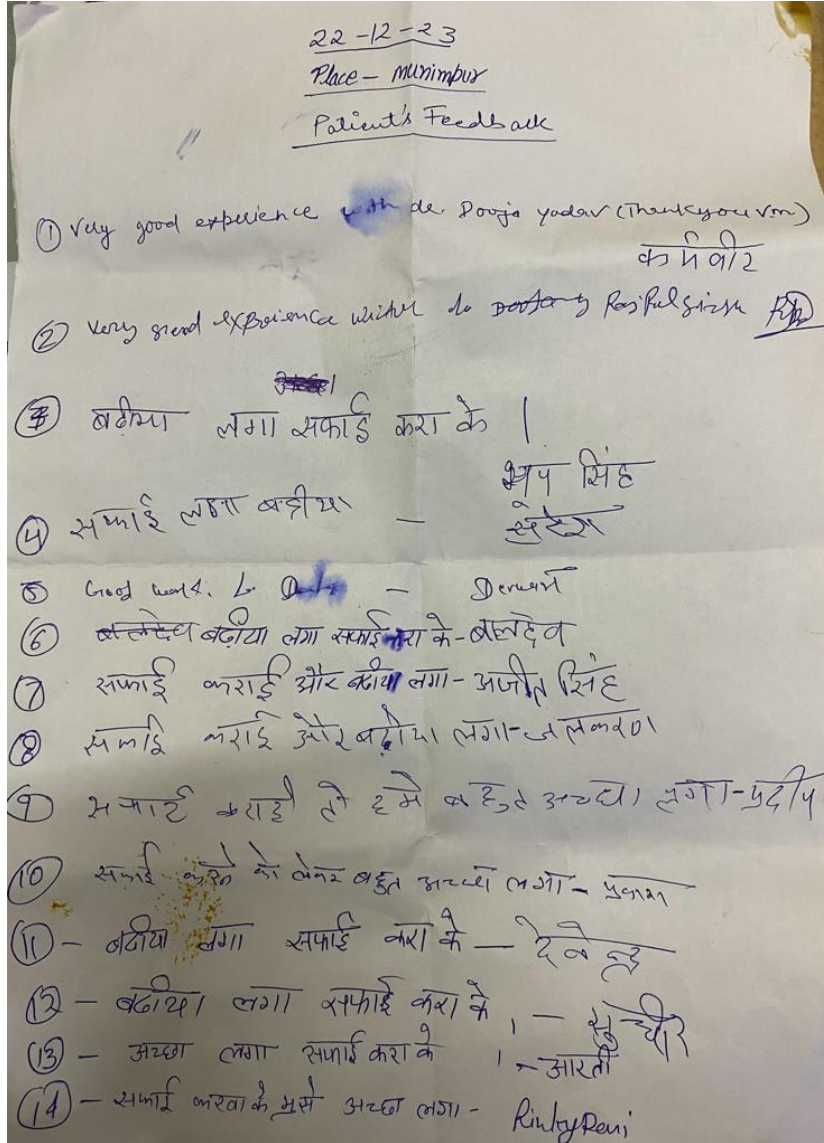 22-12-23
Place - Munimpur
Patient's Feedback
① Very good experience with dr. Pooja yadav (Thankyou vm)
कर्मवीर
② Very good exprience Rajpal Singh
③ बढीया लगा सफाई करा के |
भूप सिंह
④ सफाई लगा बढीया —
सुदेश
⑤ Good work. —
⑥ बढ़ीया लगा सफाई करा के - बालदेव
⑦ सफाई कराई और बढीया लगा - अजीत सिंह
⑧ सफाई कराई और बढ़ीया लगा - जलकरण
⑨ सफाई कराई तो हमे बहुत अच्छा लगा - प्रदीप
⑩ सफाई करने को लेकर बहुत अच्छा लगा - प्रकाश
⑪ - बढीया लगा सफाई करा के — देवेन्द्र
⑫ - बढीया लगा सफाई करा के , -
⑬ - अच्छा लगा सफाई करा के , - आरती
⑭ - सफाई करवा के मुझे अच्छा लगा - Rinky Rani